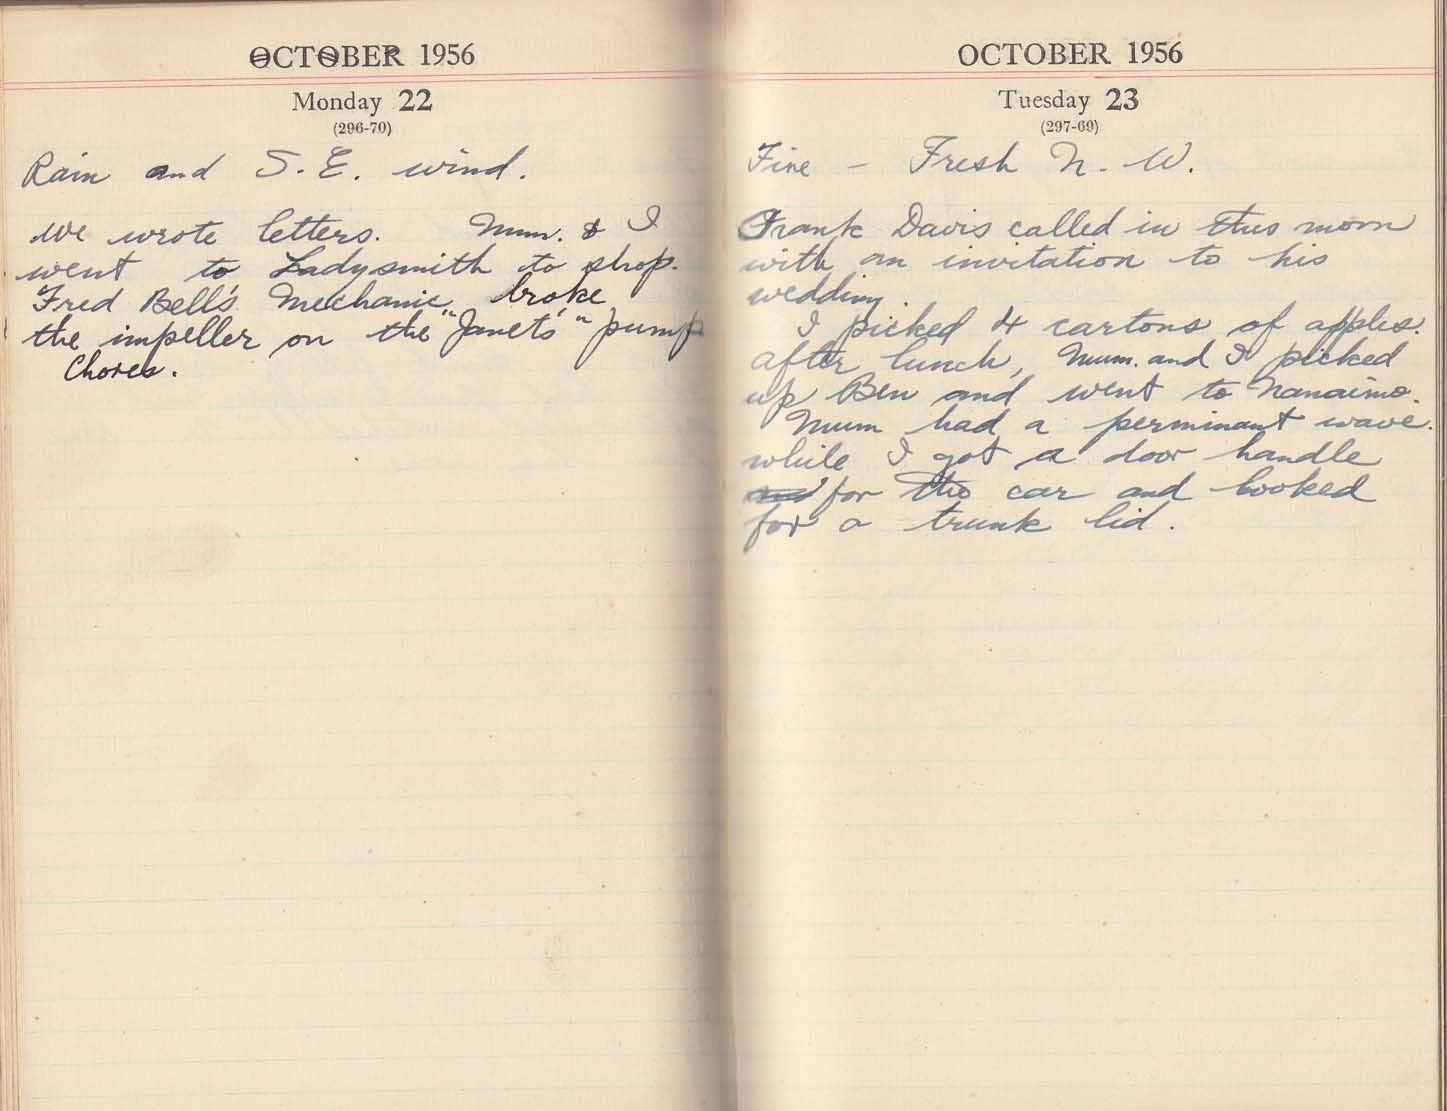 OCTOBER 1956
Monday 22
(296-70)
Rain and S. E. wind.
We wrote letters. Mum. & I
went to Ladysmith to shop.
Fred Bell's Mechanic broke
the impeller on the "Janet's" pump
Chores.
OCTOBER 1956
Tuesday 23
(297-69)
Fine - Fresh N. W.
Frank Davis called in this morn
with an invitation to his
wedding.
I picked 4 cartons of apples.
after lunch, Mum. and I picked
up Ben and went to Nanaimo.
Mum had a perminant wave.
while I got a door handle
and for the car and looked
for a trunk lid.